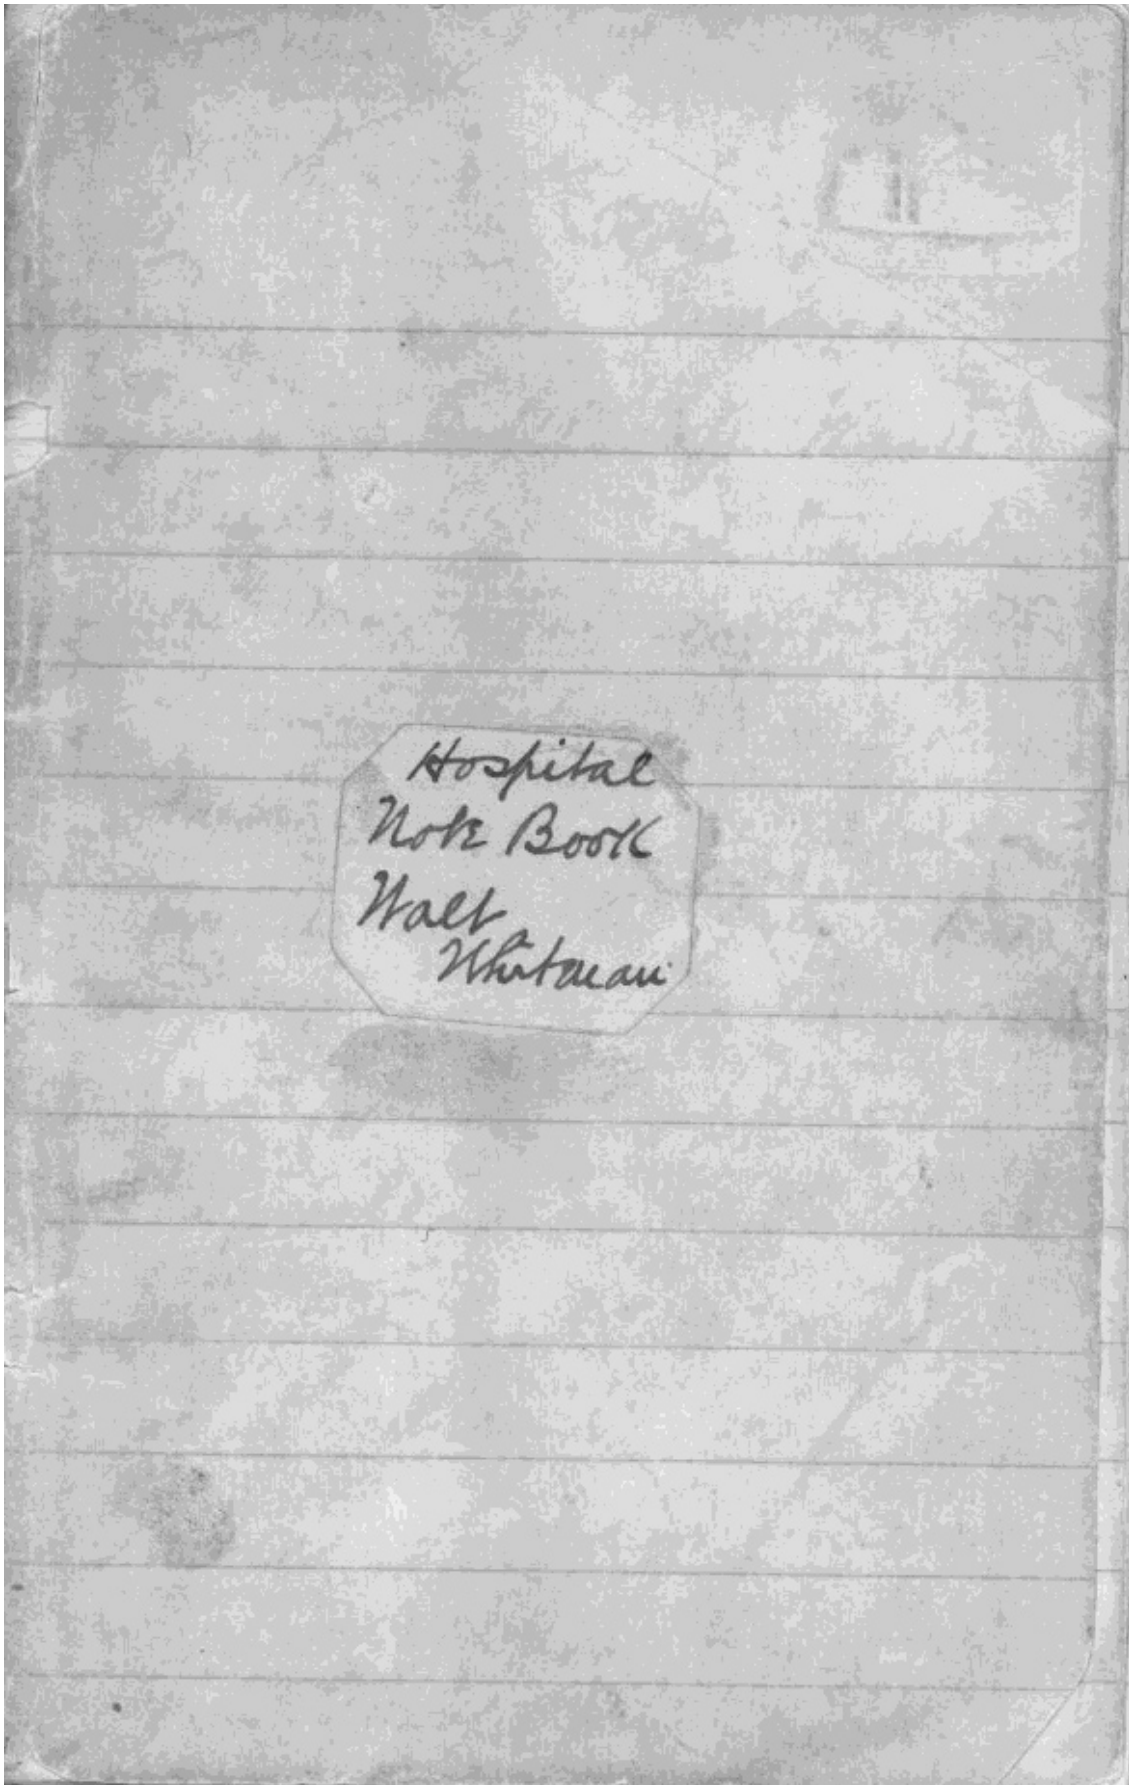 Hospital
Note Book
Walt
Whitman